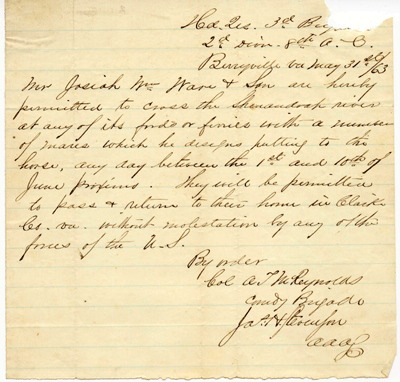 Hd. Qrs. 3d Brigade
2d Divn. 8th A. C.
Berryville Va May 31st/63
Mr Josiah Wm Ware & Son are hereby
permitted to cross the Shenandoah river
at any of its fords or ferries with a number
of mares which he designs putting to the
horse, any day between the 1st and 10th of
June proximo. They will be permitted
to pass & return to their home in Clarke
Co. Va. without molestation by any of the
forces of the U.S.
By order
Col A. T. McReynolds
Comdg Brigade
Jas. H. Stevenson
a a a G